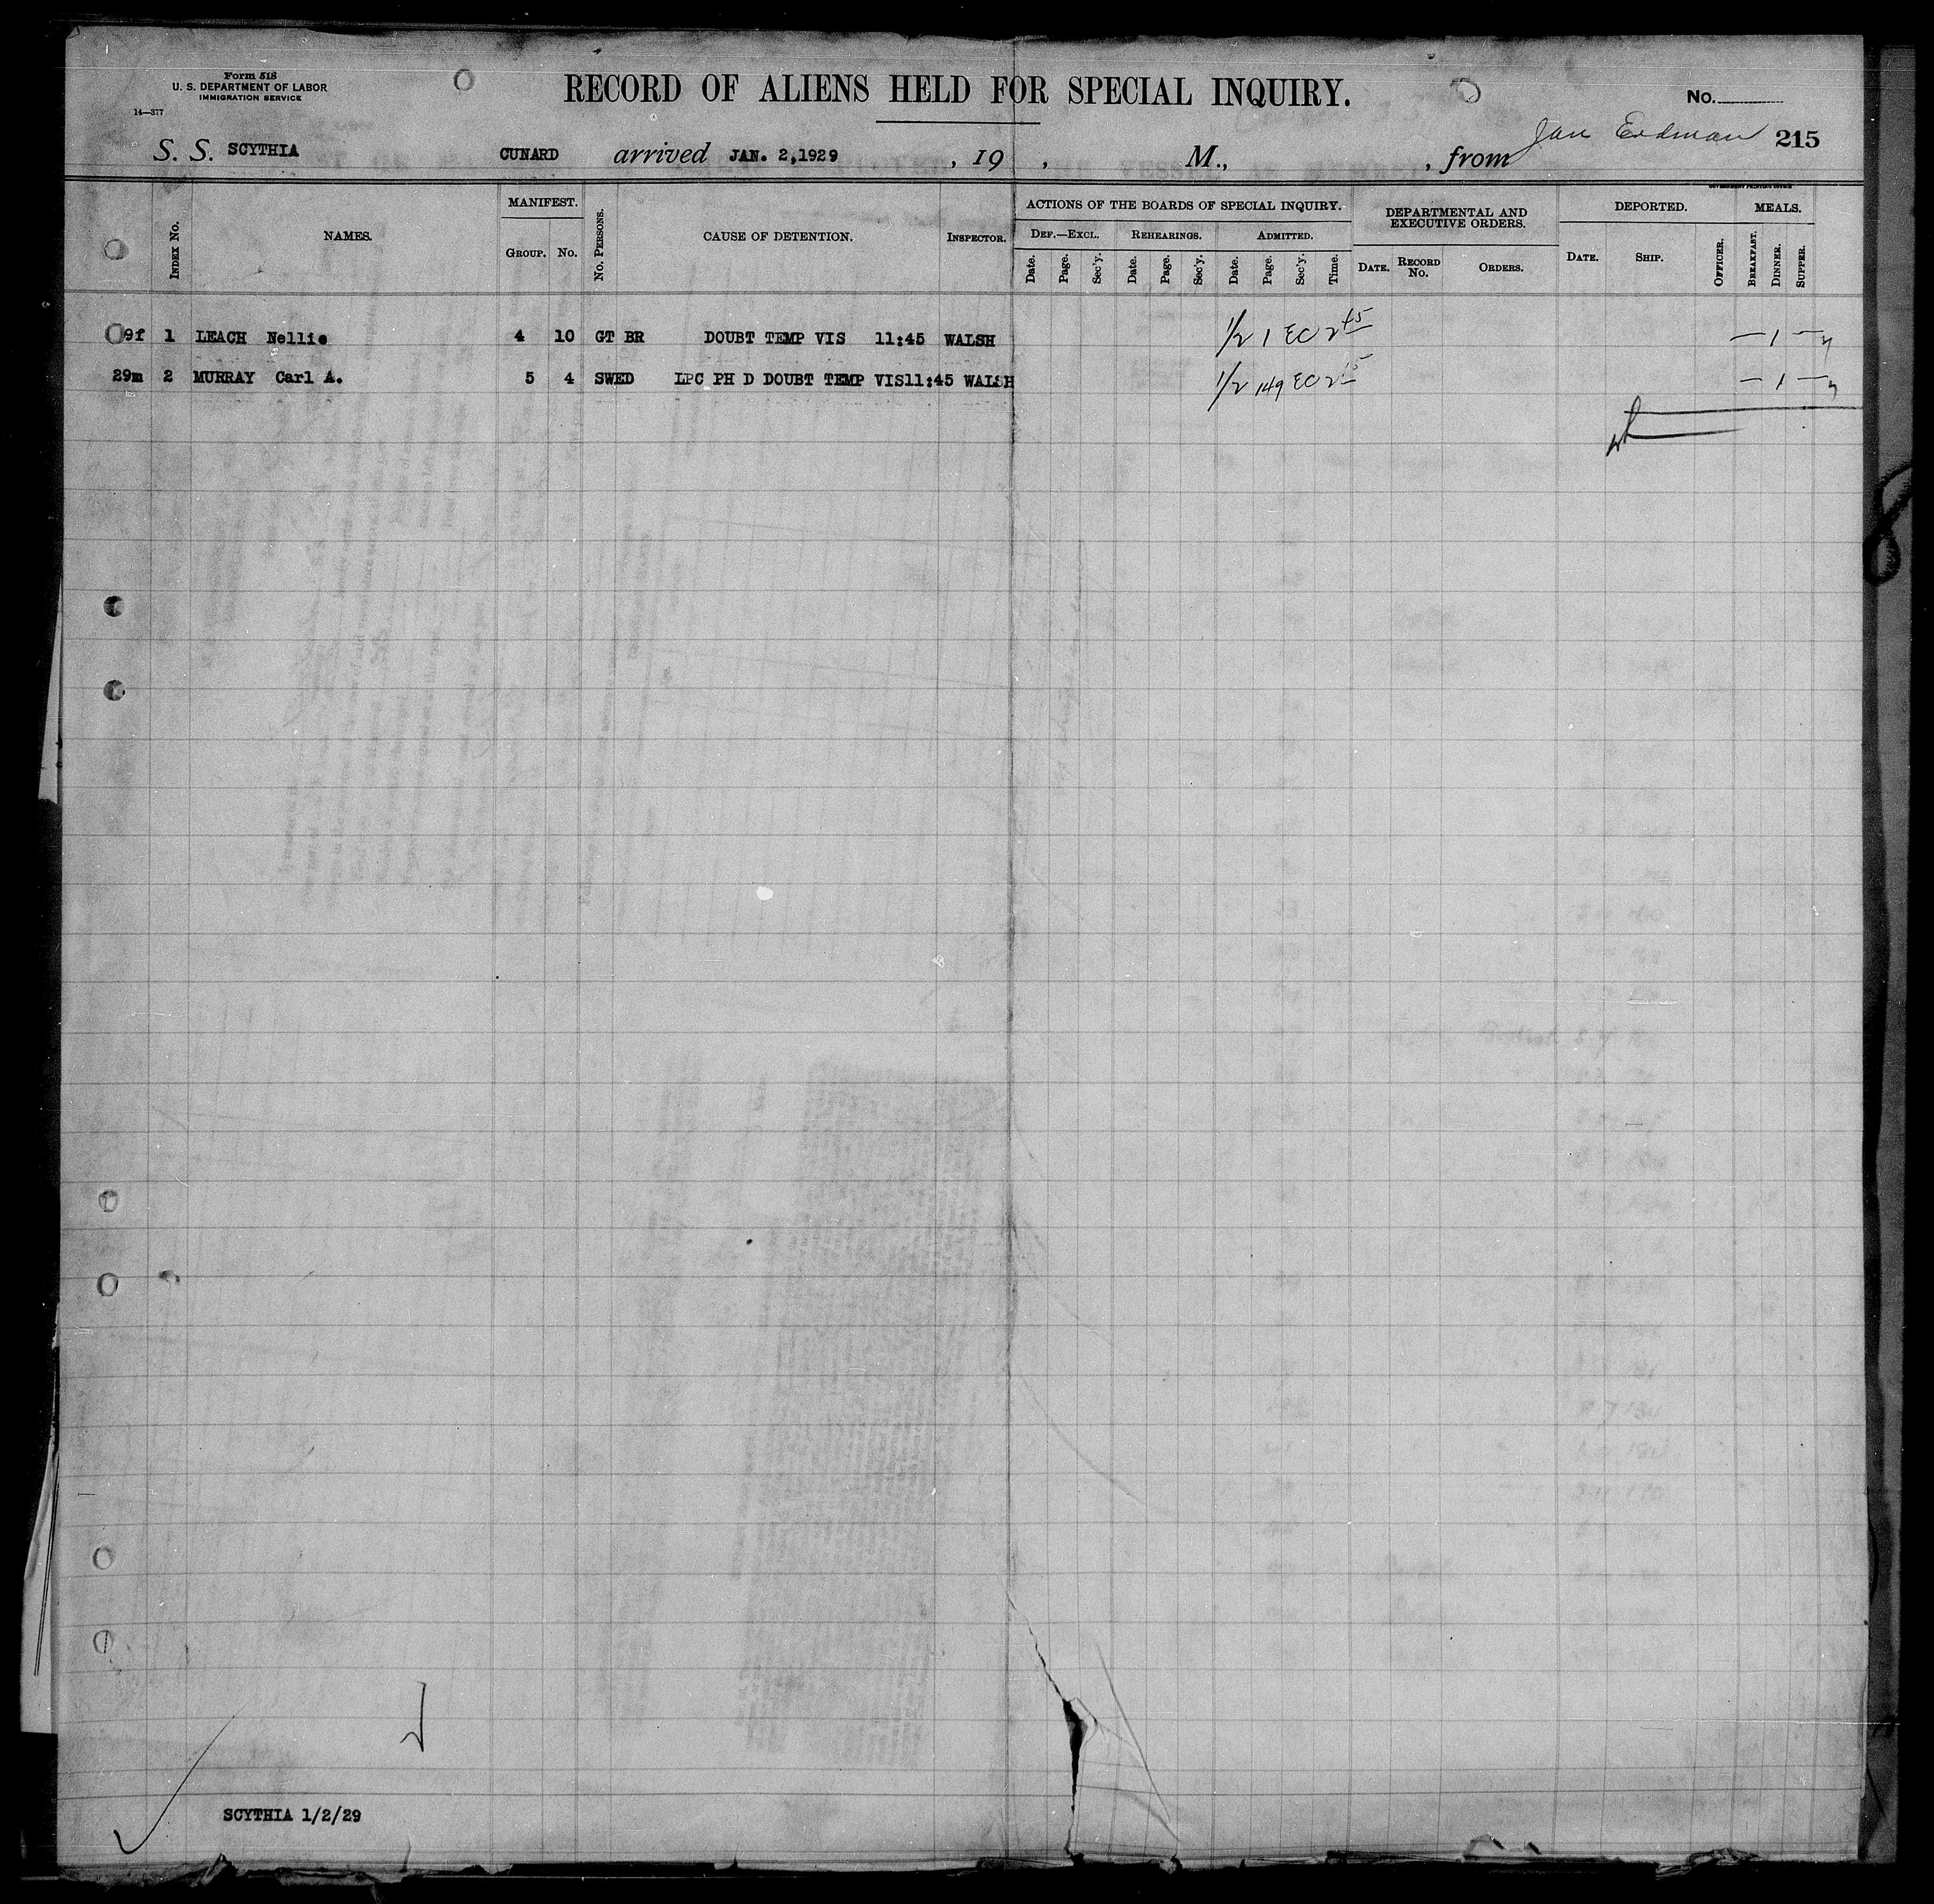 Form 518
U. S. DEPARTMENT OF LABOR
IMMIGRATION SERVICE
14—377
RECORD OF ALIENS HELD FOR SPECIAL INQUIRY.
No.
S. S. SCYTHIA CUNARD arrived JAN. 2,1929 , 19 , M., , from Jan Erdman 215
GOVERNMENT PRINTING OFFICE
INDEX No. NAMES. MANIFEST. No. PERSONS. CAUSE OF DETENTION. INSPECTOR. ACTIONS OF THE BOARDS OF SPECIAL INQUIRY. DEPARTMENTAL AND EXECUTIVE ORDERS. DEPORTED. MEALS.
GROUP. No. DEF.—EXCL. REHEARINGS. ADMITTED.
Date. Page. Sec'y. Date. Page. Sec'y. Date. Page. Sec'y. Time. DATE. RECORD No. ORDERS. DATE. SHIP. OFFICER. BREAKFAST. DINNER. SUPPER.
9f 1 LEACH Nellie 4 10 GT BR DOUBT TEMP VIS 11:45 WALSH 1/2 1 EC 2 45 — 1 —
29m 2 MURRAY Carl A. 5 4 SWED LPC PH D DOUBT TEMP VIS11:45 WALSH 1/2 149 EC 2 15 — 1 —
8
SCYTHIA 1/2/29